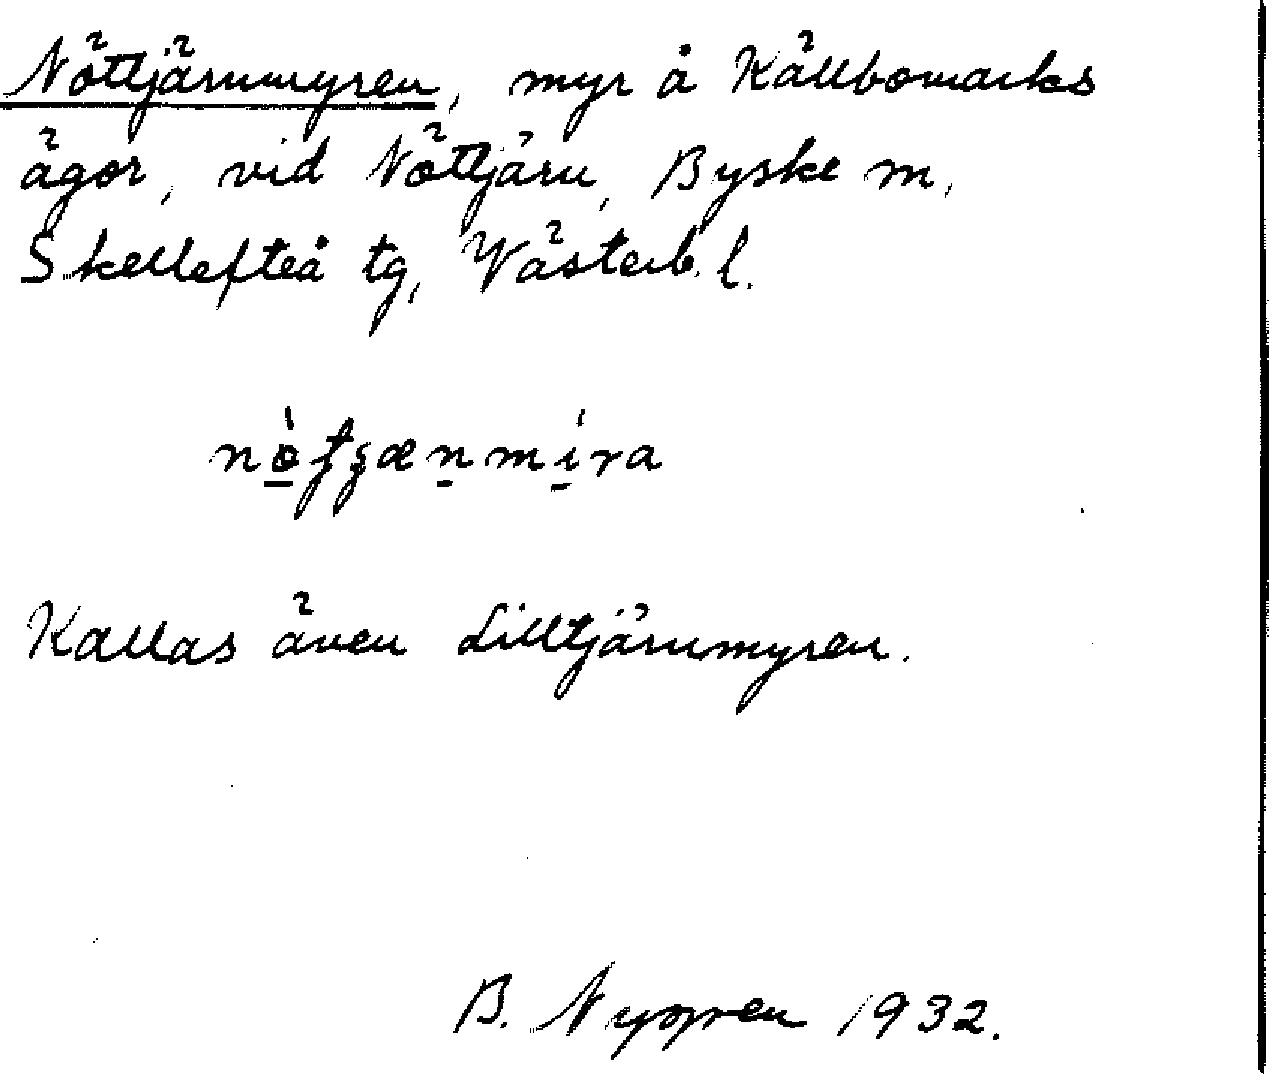 Nöttjärnmyren, myr å Källbomarks
ägor, vid Nöttjärn, Byske m,
Skellefteå tg, Västerb. l.
Kallas även Lilltjärnmyren.
B. Nygren 1932.